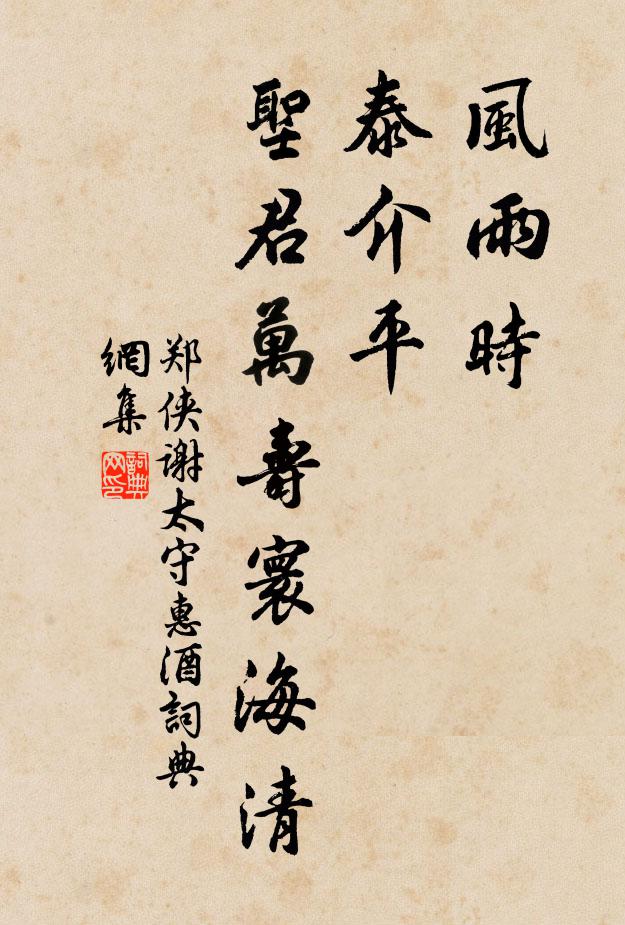 風雨時
泰介平
聖君萬壽寰海清
郑侠谢太守惠酒詞典
網集
詞典網印